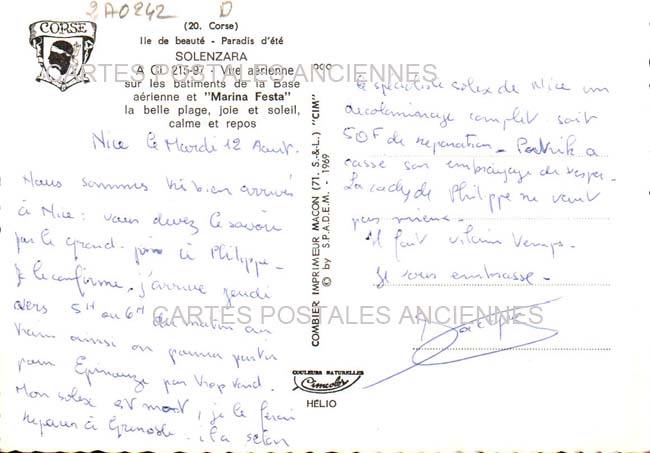 2A0242 D
CORSE
(20. Corse)
Ile de beauté - Paradis d'été
SOLENZARA
A CI 215-97 - Vue aérienne
sur les bâtiments de la Base
aérienne et "Marina Festa"
la belle plage, joie et soleil,
calme et repos
CARTES POSTALES ANCIENNES
Nice le Mardi 12 Aout.
Nous sommes très bien arrivés
à Nice : vous devez le savoir
par le grand-père à Philippe-
Je le confirme, j'arrive jeudi
vers 5H ou 6H du matin au
train ainsi on pourra partir
pour Epinouze pas trop tard.
Mon solex est mort, je le ferai
réparer à Grenoble - il a selon
le spécialiste solex de Nice un
décolaminage complet soit
50F de réparation - Patrik a
cassé son embrayage de vespa.
La cady de Philippe ne vaut
pas mieux.
Il fait vilain temps-
Je vous embrasse-
CARTES POSTALES ANCIENNES
COMBIER IMPRIMEUR MACON (71. S.-&-L.) "CIM"
© by S.P.A.D.E.M. - 1969
COULEURS NATURELLES
Cimcolor
HÉLIO